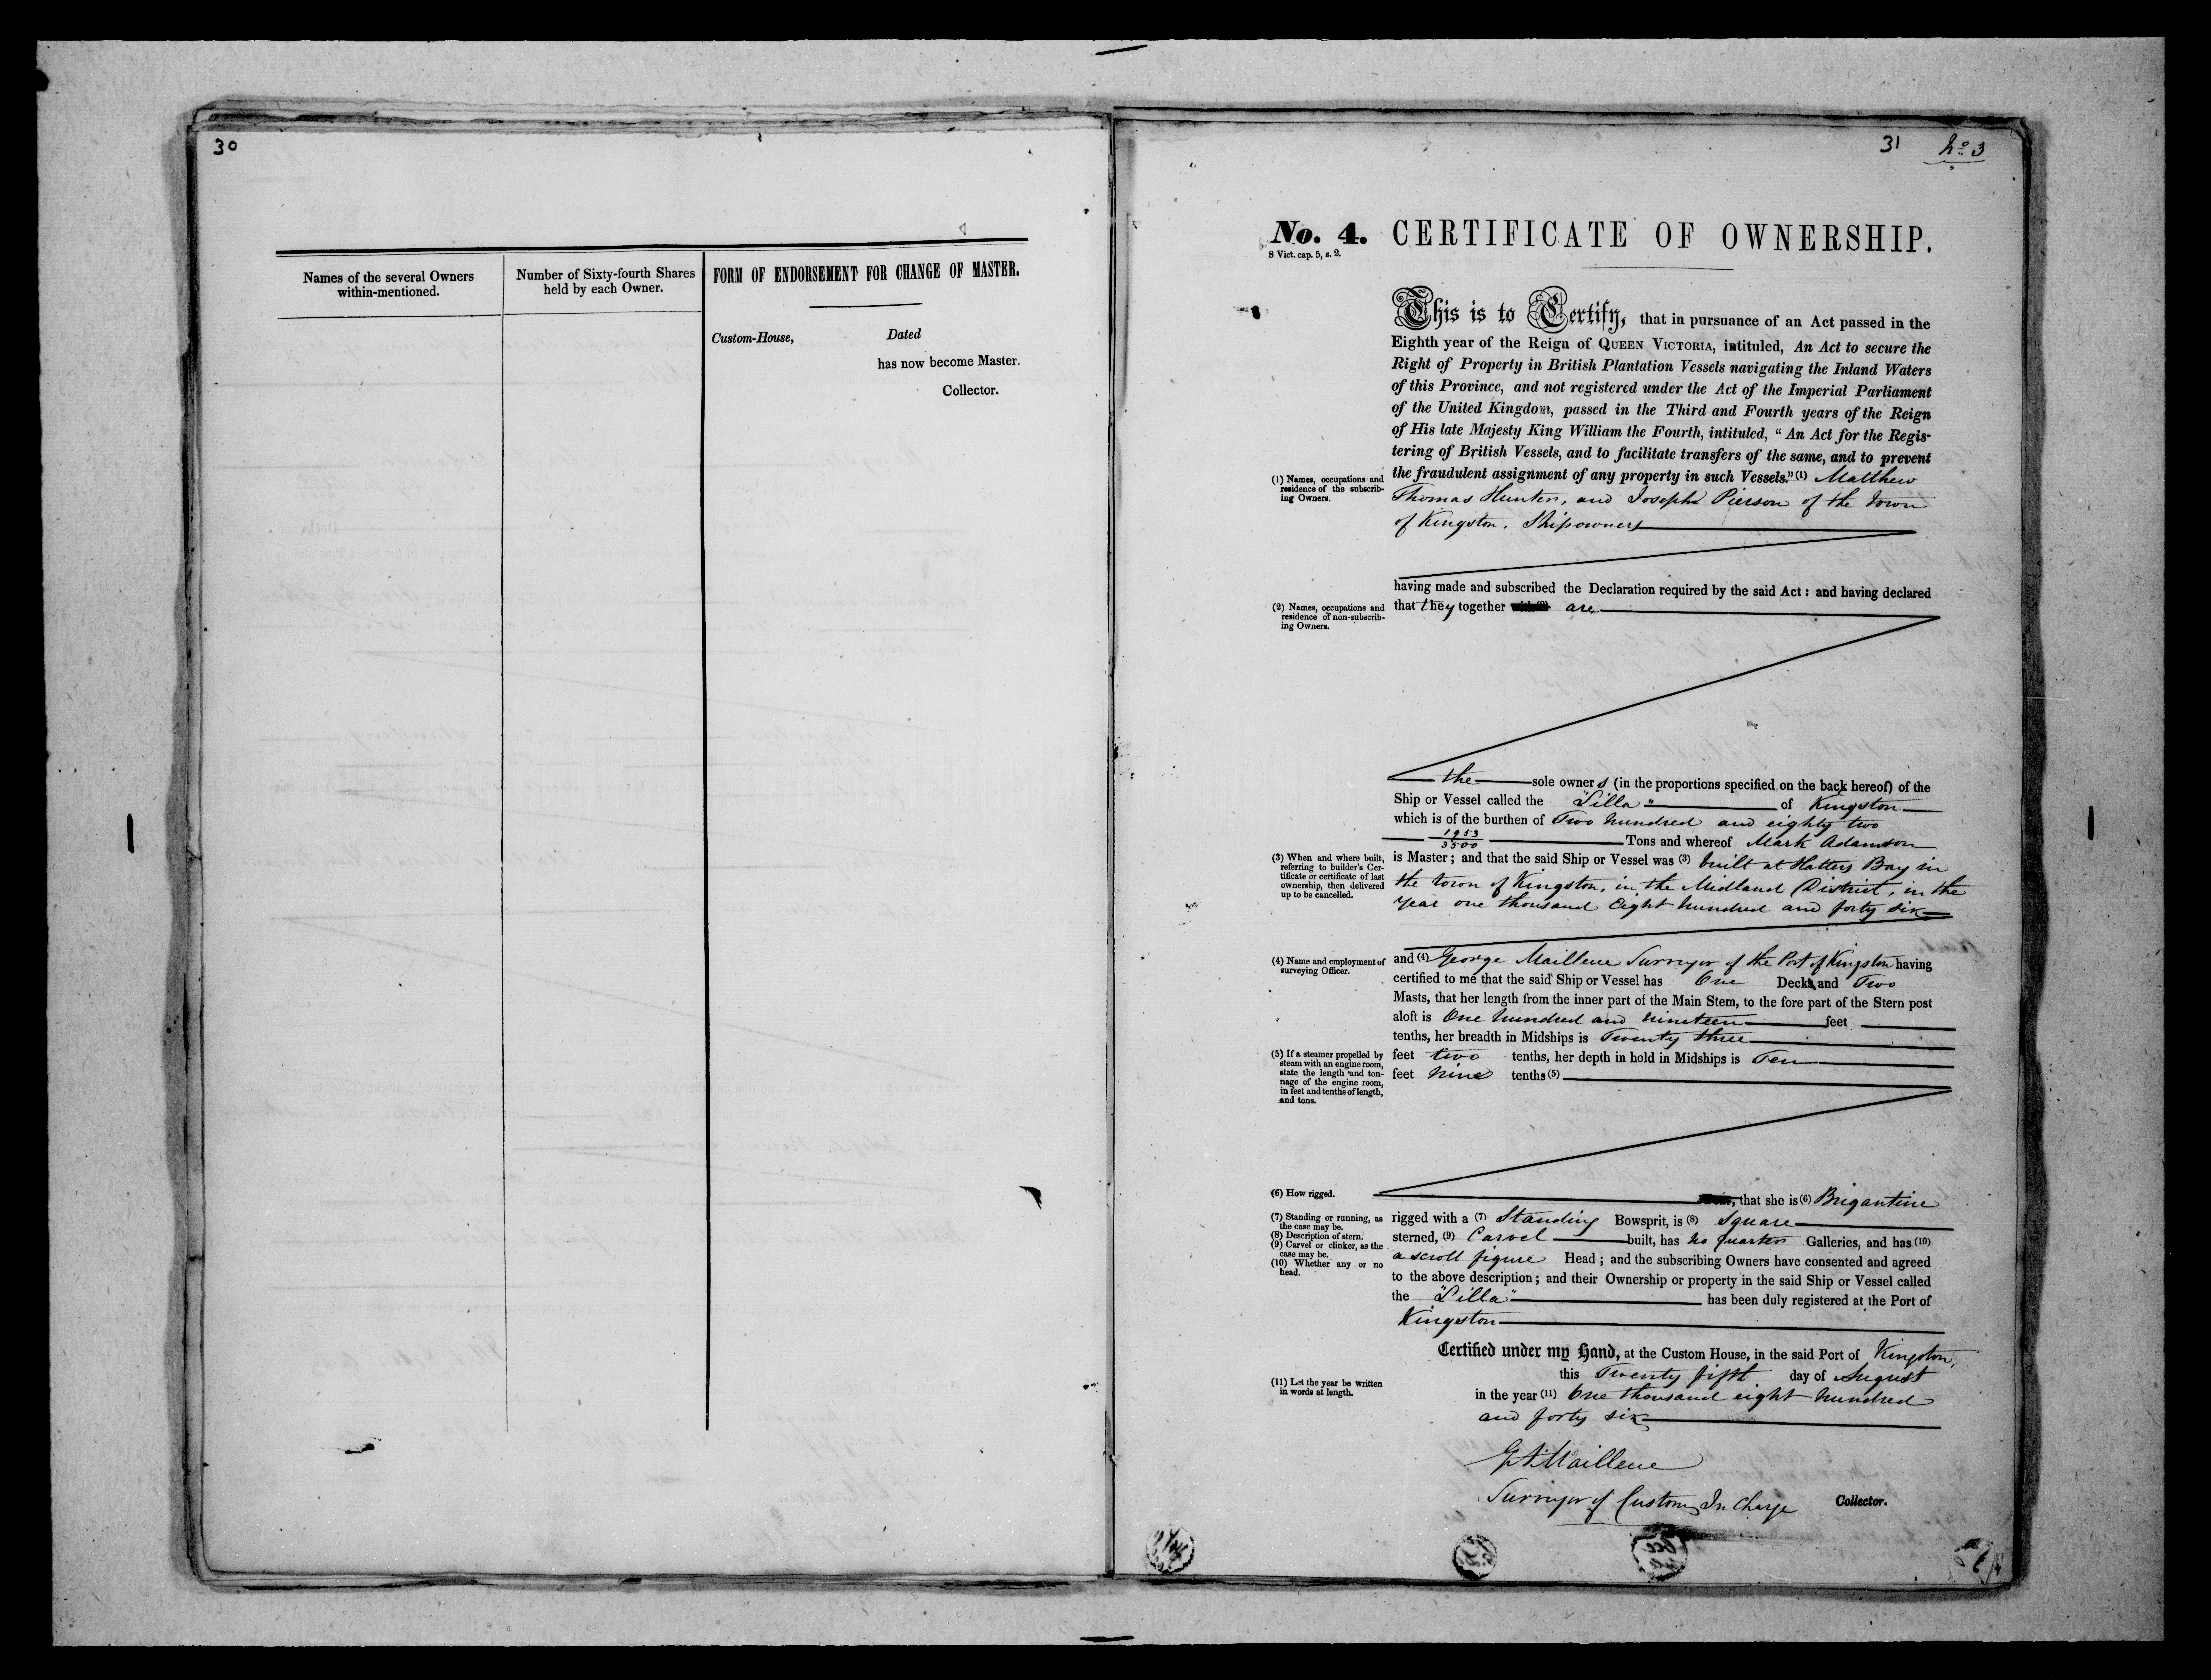 30
Names of the several Owners
within-mentioned.
Number of Sixty-fourth Shares
held by each Owner.
FORM OF ENDORSEMENT FOR CHANGE OF MASTER.
Custom-House, Dated
has now become Master.
Collector.
31 No 3
No. 4. CERTIFICATE OF OWNERSHIP.
8 Vict. cap. 5, s. 2.
This is to Certify, that in pursuance of an Act passed in the
Eighth year of the Reign of QUEEN VICTORIA, intituled, An Act to secure the
Right of Property in British Plantation Vessels navigating the Inland Waters
of this Province, and not registered under the Act of the Imperial Parliament
of the United Kingdom, passed in the Third and Fourth years of the Reign
of His late Majesty King William the Fourth, intituled, "An Act for the Regis-
tering of British Vessels, and to facilitate transfers of the same, and to prevent
the fraudulent assignment of any property in such Vessels." (1) Matthew
(1) Names, occupations and
residence of the subscrib-
ing Owners.
Thomas Hunter, and Joseph Pierson of the town
of Kingston, Shipowners
having made and subscribed the Declaration required by the said Act: and having declared
that they together are
(2) Names, occupations and
residence of non-subscrib-
ing Owners.
the sole owners (in the proportions specified on the back hereof) of the
Ship or Vessel called the "Lilla" of Kingston
which is of the burthen of Two hundred and eighty two
1953
3500 Tons and whereof Mark Adamson
is Master; and that the said Ship or Vessel was (3) built at Hatters Bay in
(3) When and where built,
referring to builder's Cer-
tificate or certificate of last
ownership, then delivered
up to be cancelled.
the town of Kingston, in the Midland District, in the
year one thousand Eight hundred and forty six
and (4) George Maillene Surveyor of the Port of Kingston having
(4) Name and employment of
surveying Officer.
certified to me that the said Ship or Vessel has One Deck and Two
Masts, that her length from the inner part of the Main Stem, to the fore part of the Stern post
aloft is One hundred and nineteen feet
tenths, her breadth in Midships is Twenty three
feet two tenths, her depth in hold in Midships is Ten
feet nine tenths (5)
(5) If a steamer propelled by
steam with an engine room,
state the length and ton-
nage of the engine room,
in feet and tenths of length,
and tons.
(6) How rigged.
that she is (6) Brigantine
rigged with a (7) Standing Bowsprit, is (8) Square
(7) Standing or running, as
the case may be.
(8) Description of stern.
(9) Carvel or clinker, as the
case may be.
(10) Whether any or no
head.
sterned, (9) Carvel built, has no quarter Galleries, and has (10)
a scroll figure Head; and the subscribing Owners have consented and agreed
to the above description; and their Ownership or property in the said Ship or Vessel called
the "Lilla" has been duly registered at the Port of
Kingston
Certified under my Hand, at the Custom House, in the said Port of Kingston,
this Twenty fifth day of August
in the year (11) One thousand eight hundred
(11) Let the year be written
in words at length.
and forty six
G A Maillene
Surveyor of Customs In Charge Collector.